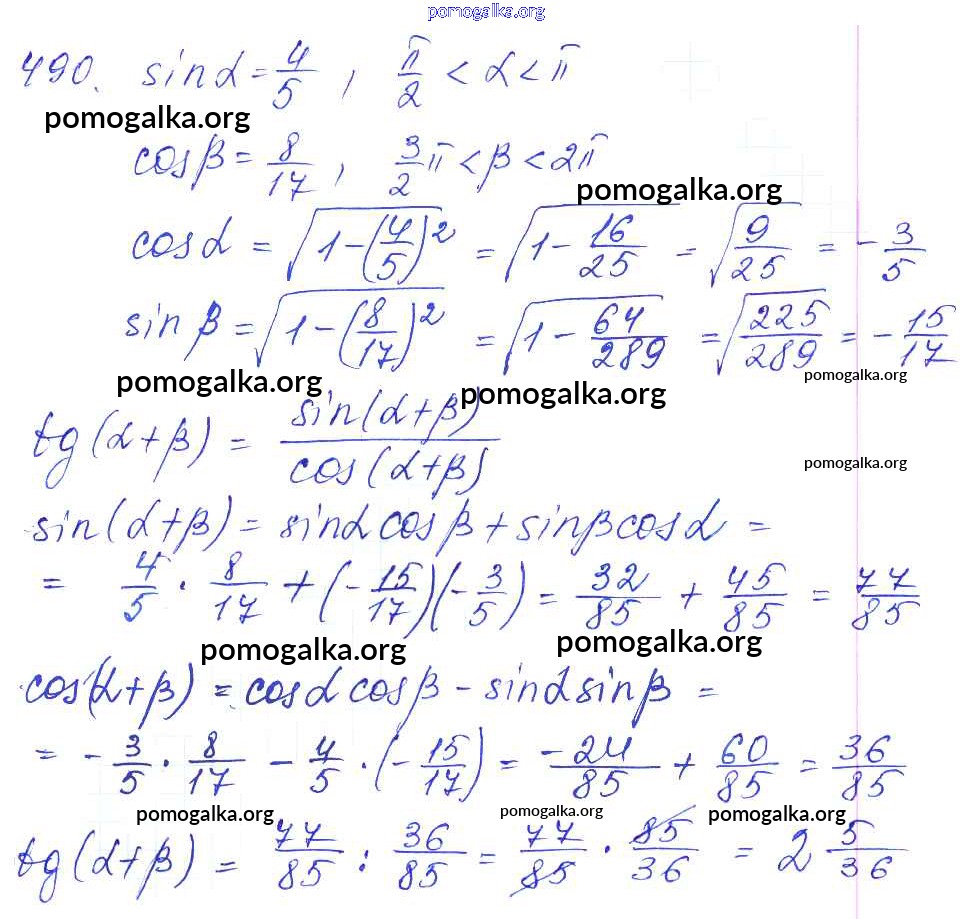 pomogalka.org
490. sinα = 4/5, π/2 < α < π
pomogalka.org
cosβ = 8/17, 3/2 π < β < 2π
pomogalka.org
cosα = √(1-(4/5)²) = √(1-16/25) = √(9/25) = -3/5
sinβ = √(1-(8/17)²) = √(1-64/289) = √(225/289) = -15/17
pomogalka.org pomogalka.org pomogalka.org
tg(α+β) = sin(α+β)/cos(α+β)
pomogalka.org
sin(α+β) = sinα cosβ + sinβ cosα =
= 4/5 · 8/17 + (-15/17)(-3/5) = 32/85 + 45/85 = 77/85
pomogalka.org pomogalka.org
cos(α+β) = cosα cosβ - sinα sinβ =
= -3/5 · 8/17 - 4/5 · (-15/17) = -24/85 + 60/85 = 36/85
pomogalka.org pomogalka.org pomogalka.org
tg(α+β) = 77/85 : 36/85 = 77/85 · 85/36 = 2 5/36